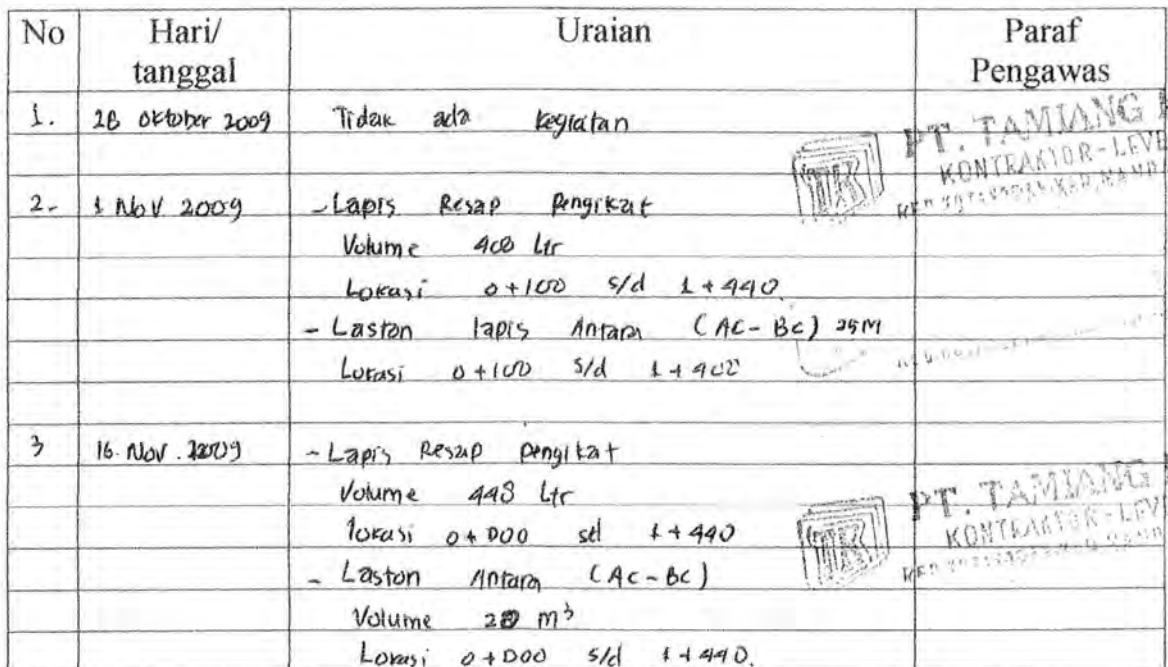 No Hari/ tanggal Uraian Paraf Pengawas
1. 28 oktober 2009 Tidak ada kegiatan
PT. TAMIANG
KONTRAKTOR - LEVE
TR
2- 1 Nov 2009 - Lapis Resap Pengikat
Volume 400 Ltr
Lokasi 0+100 s/d 1+440
- Laston lapis Antara (AC-BC) 25M
Lokasi 0+100 s/d 1+402
3 16. Nov. 2009 - Lapis Resap pengikat
Volume 448 Ltr
lokasi 0+000 sd 1+440
PT. TAMIANG
KONTRAKTOR - LEV
TR
- Laston Antara (AC-BC)
Volume 20 m³
Lokasi 0+000 s/d 1+440.